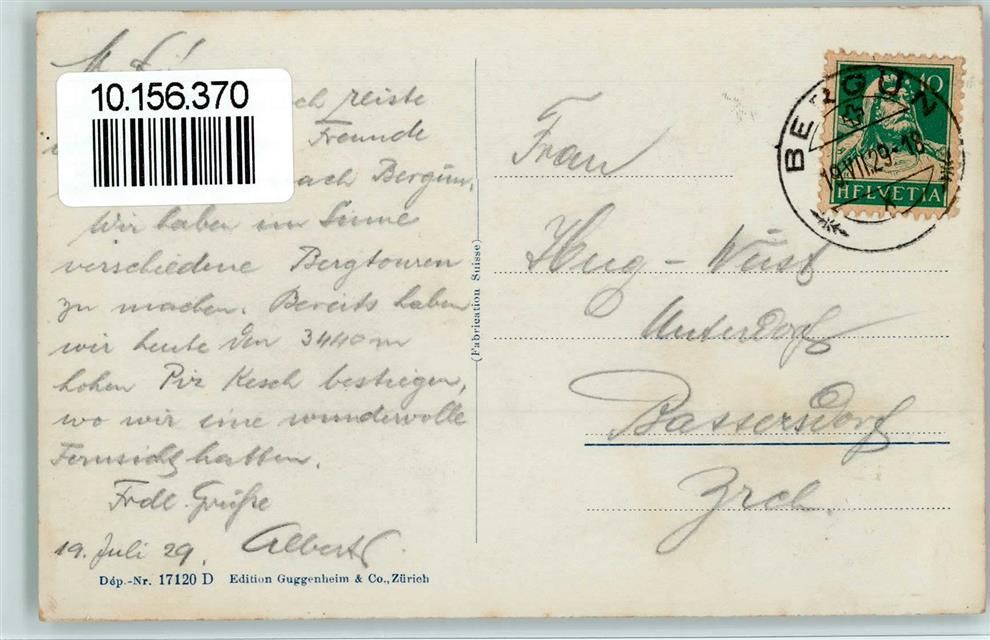 10.156.370
ch reiste
Freunde
ach Bergün.
Wir haben im Sinne
verschiedene Bergtouren
zu machen. Bereits haben
wir heute den 3440 m
hohen Piz Kesch bestiegen,
wo wir eine wundervolle
Fernsicht hatten.
Frdl. Grüße
19. Juli 29. Albert
Dép.-Nr. 17120 D Edition Guggenheim & Co., Zürich
(Fabrication Suisse)
10
HELVETIA
BERGÜN
19.VII.29-18
Frau
Hug-Wüst
Unterdorf
Bassersdorf
Zrch.